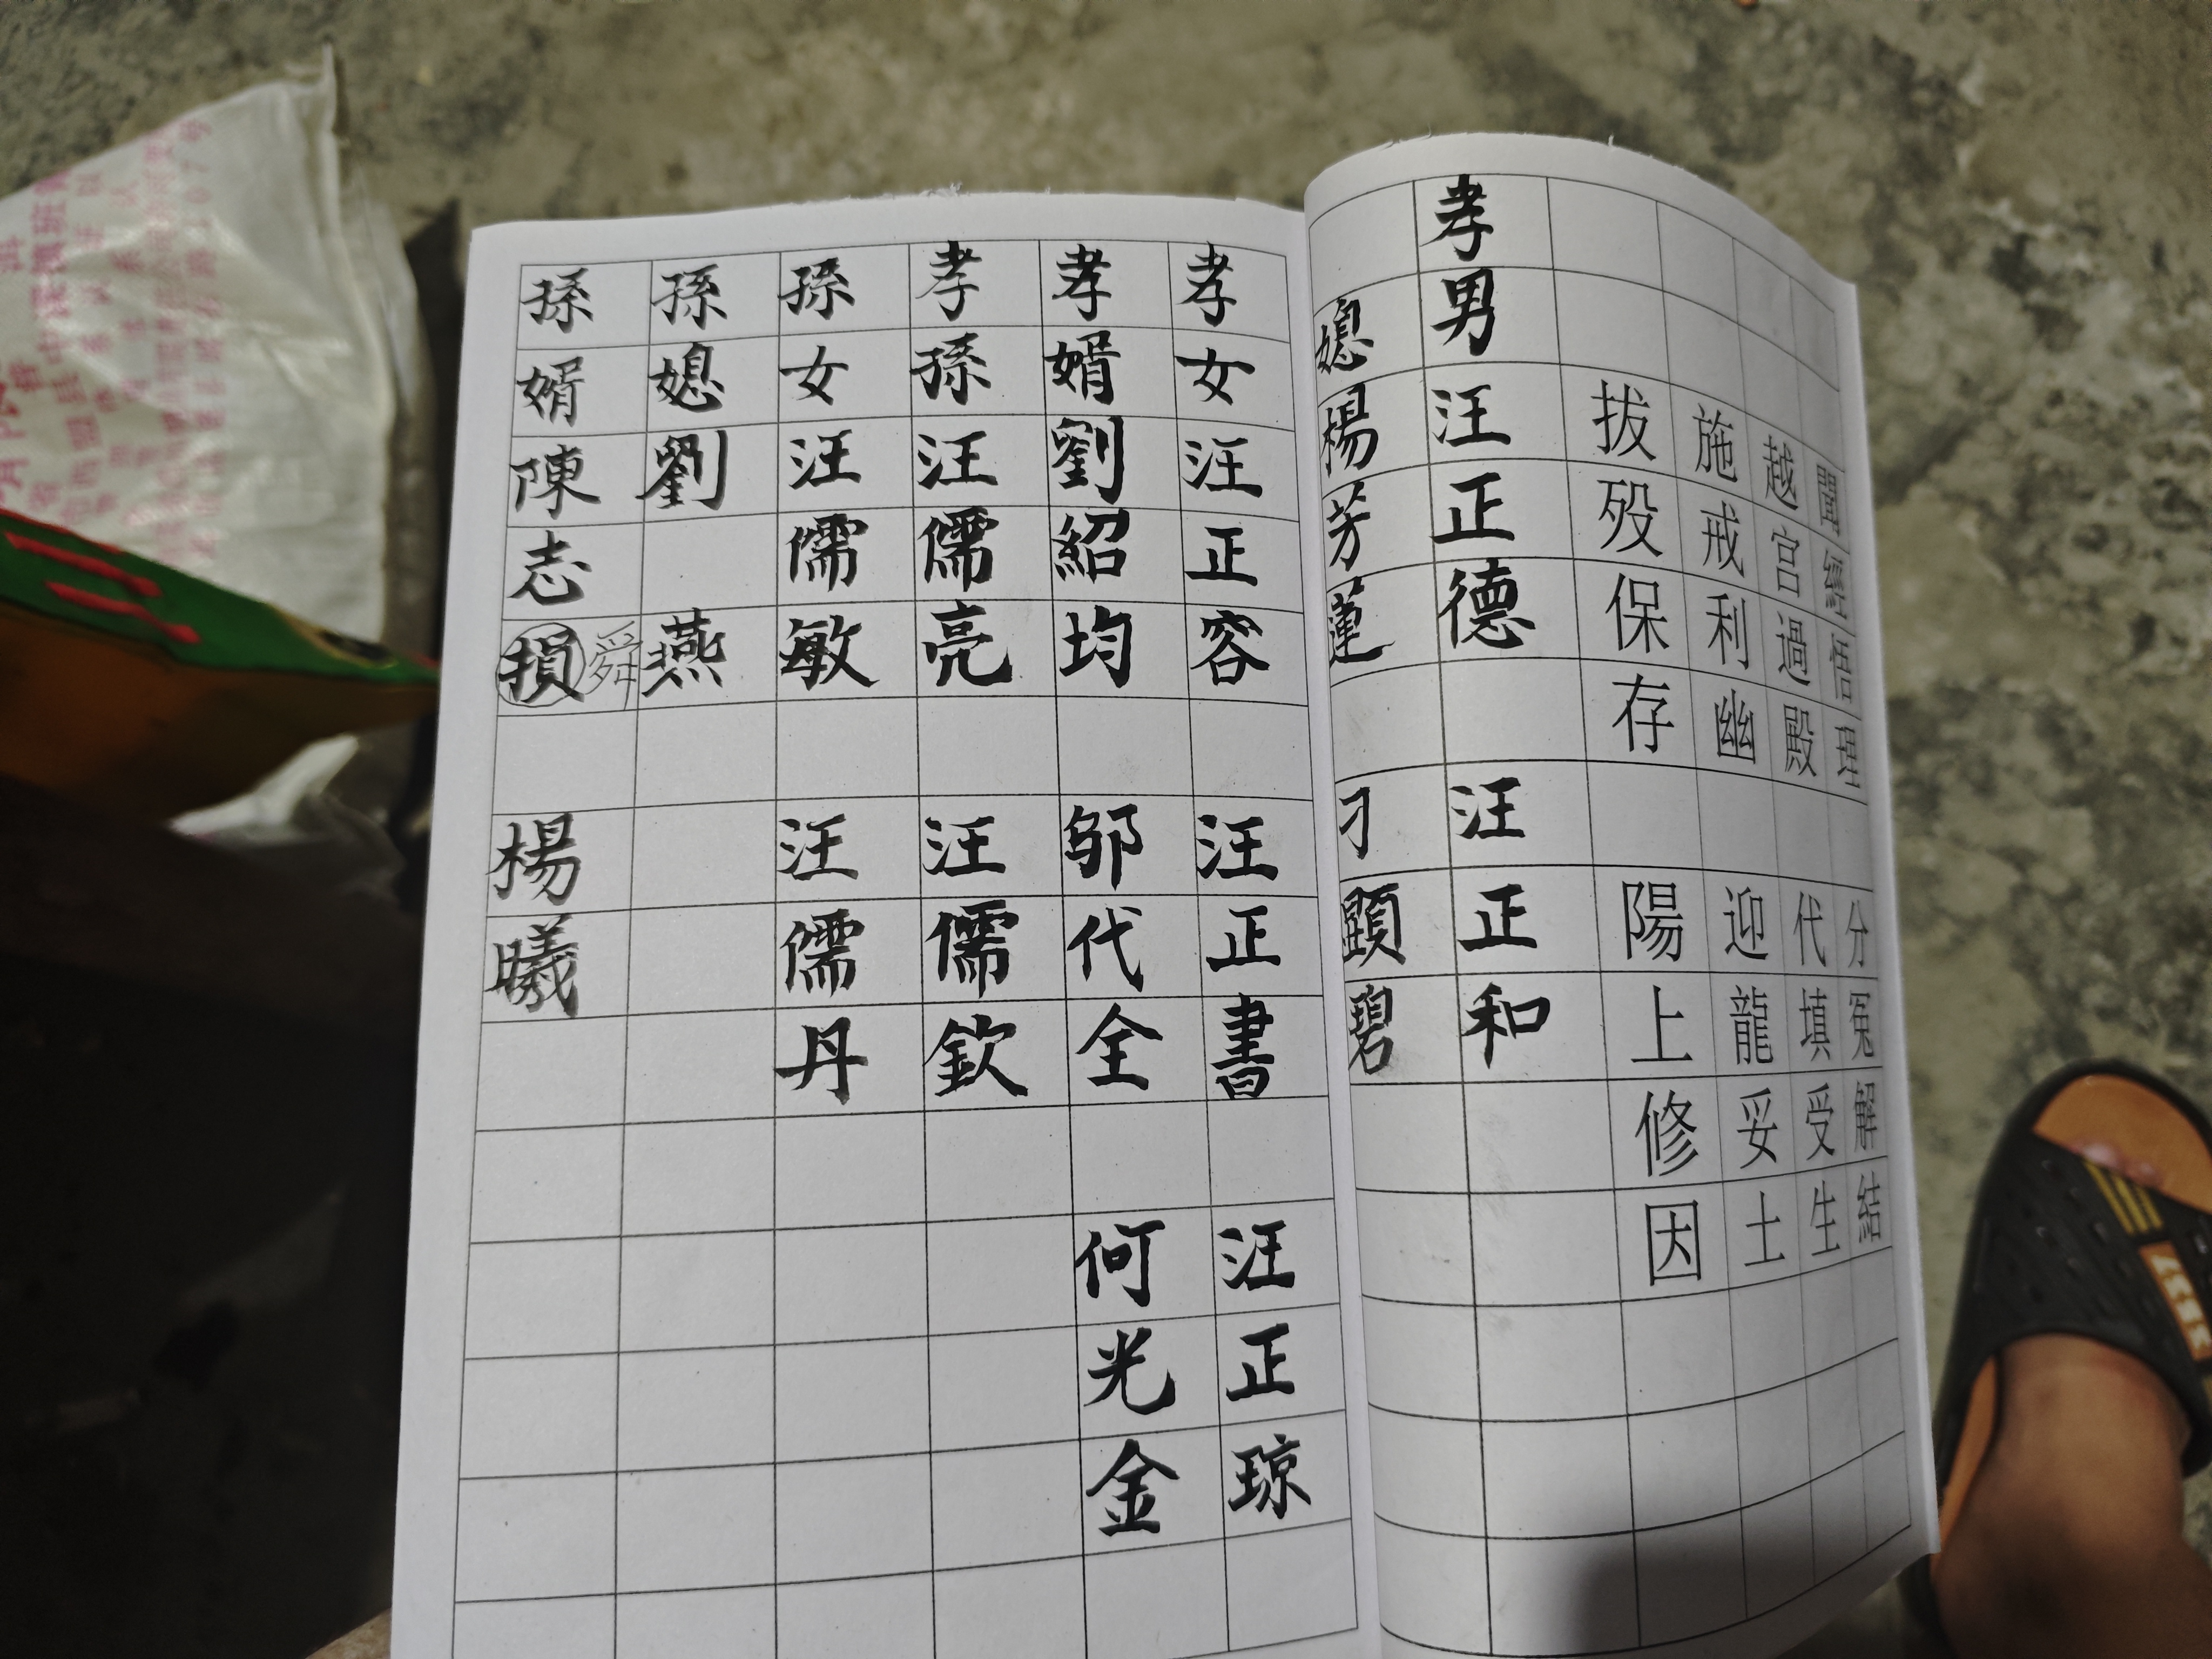 開經悟理 分冤解結
越宮過殿 代填受生
施戒利幽 迎龍妥土
拔殁保存 陽上修因
孝男汪正德 汪正和
媳楊芳蓮 刁顯碧
孝女汪正容 汪正書 汪正琼
孝婿劉紹均 邹代全 何光金
孝孫汪儒亮 汪儒欽
孫女汪儒敏 汪儒丹
孫媳劉 燕
孫婿陳志損舜 楊曦